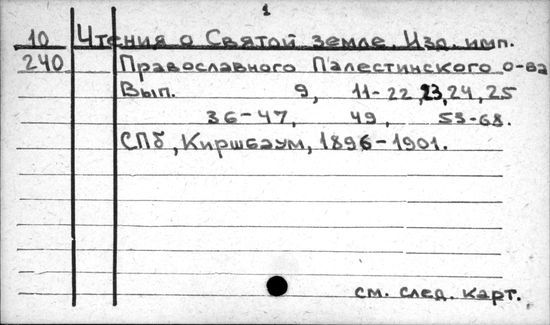 1
10 Чтения о Святой земле. Изд. имп.
240 Православного Палестинского о-ва
Вып. 9, 11-22, 23, 24, 25
36-47, 49, 53-68.
СПб, Киршбаум, 1896-1901.
см. след. карт.